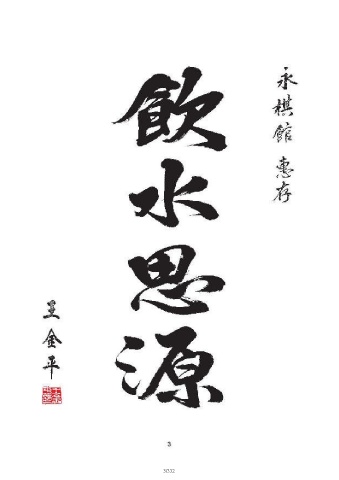 永棋館 惠存
飲水思源
王金平
3